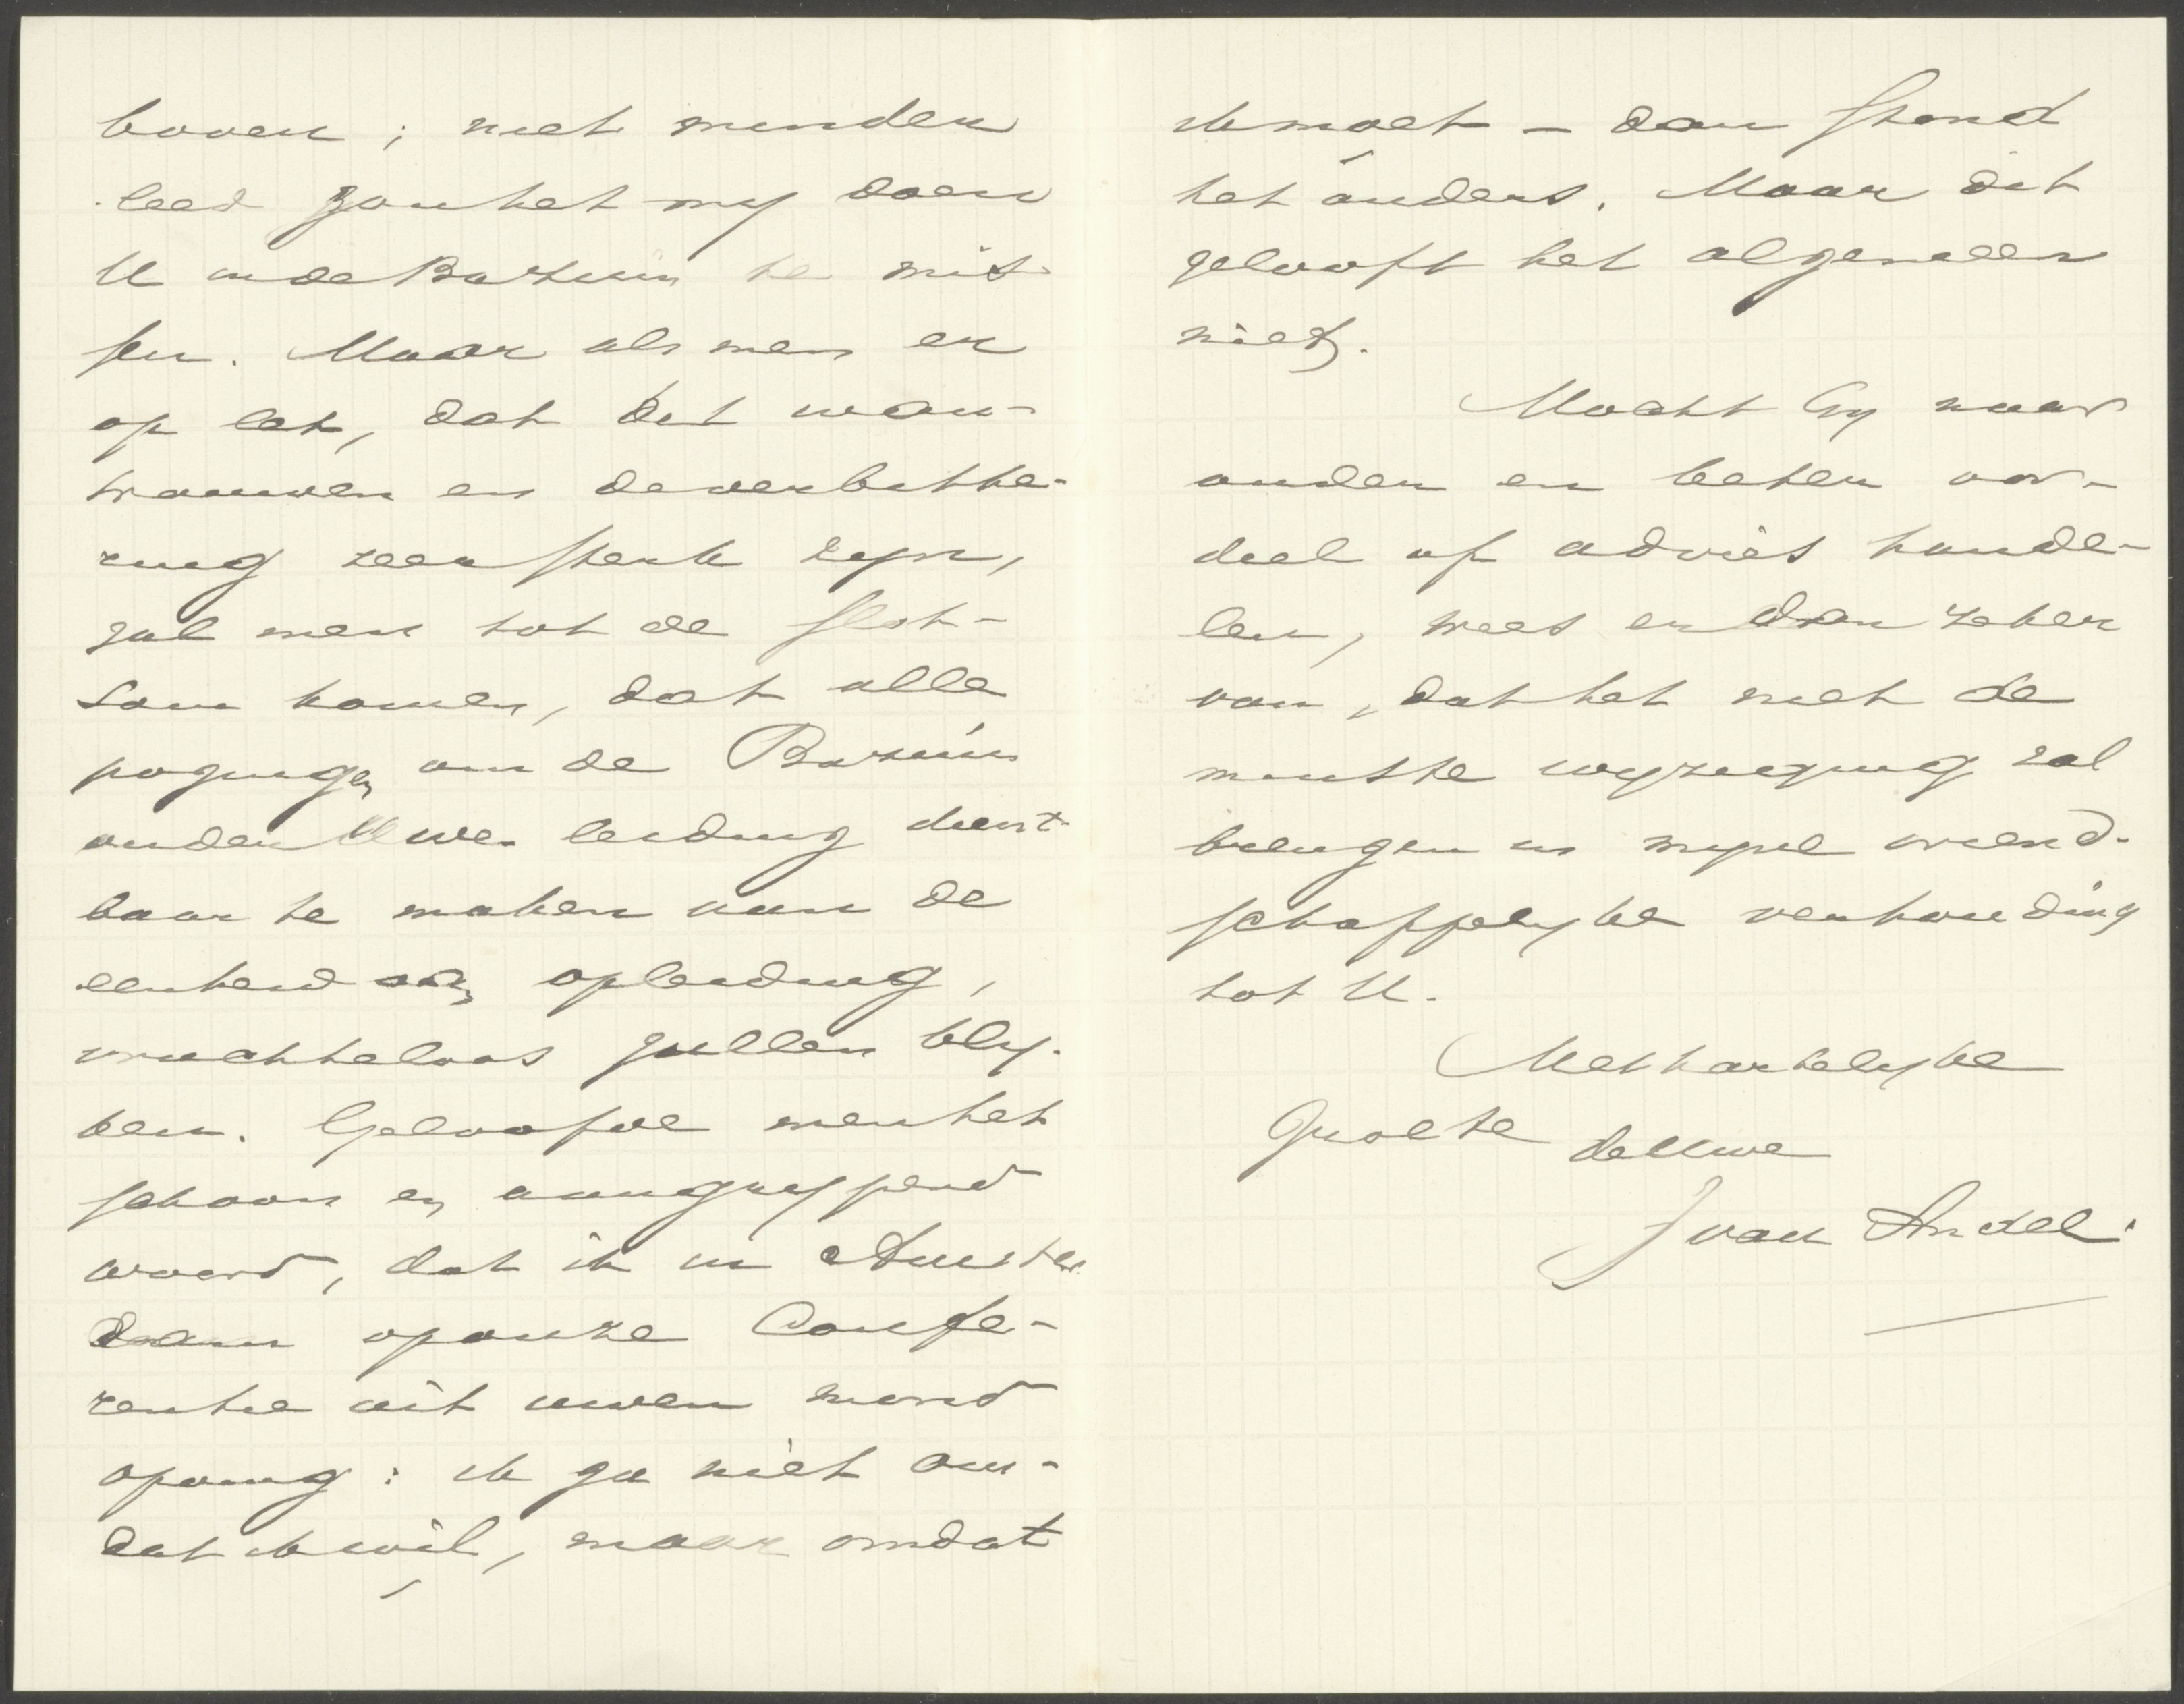 boven; niet minder
leed zou het my doen
U in de Bazuin te mis-
sen. Maar als men er
op let, dat dit wan-
trouwen en de verbitte-
ring zeer sterk zyn,
zal men tot de slot-
som komen, dat alle
pogingen om de Bazuin
onder Uwe leiding dienst-
baar te maken aan de
eenheid van opleiding,
vruchteloos zullen bly-
ven. Geloofde men het
schoon en aangrypend
woord, dat ik in Amster
dam op onze Confe-
rentie uit uwen mond
opving: ik ga niet om-
dat ik wil, maar omdat
ik moet – dan stond
het anders. Maar dit
gelooft het algemeen
niet.
Mocht Gy naar
ander en beter oor-
deel of advies hande-
len, wees er dan zeker
van, dat het niet de
minste wyziging zal
brengen in myne vriend-
schappelyke verhouding
tot U.
Met hartelyke
groete de Uwe
J van Andel.